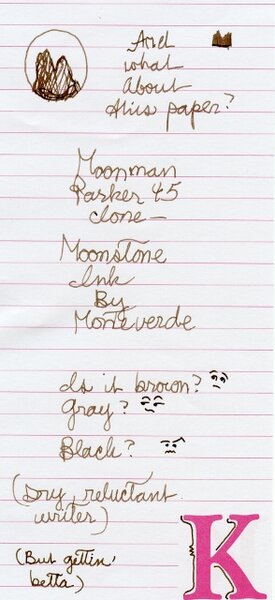 And
what
About
this paper?
Moonman
Parker 45
clone—
Moonstone
Ink
By
Monteverde
Is it brown?
Gray?
Black?
(Dry, reluctant
writer)
(But gettin'
betta)
K